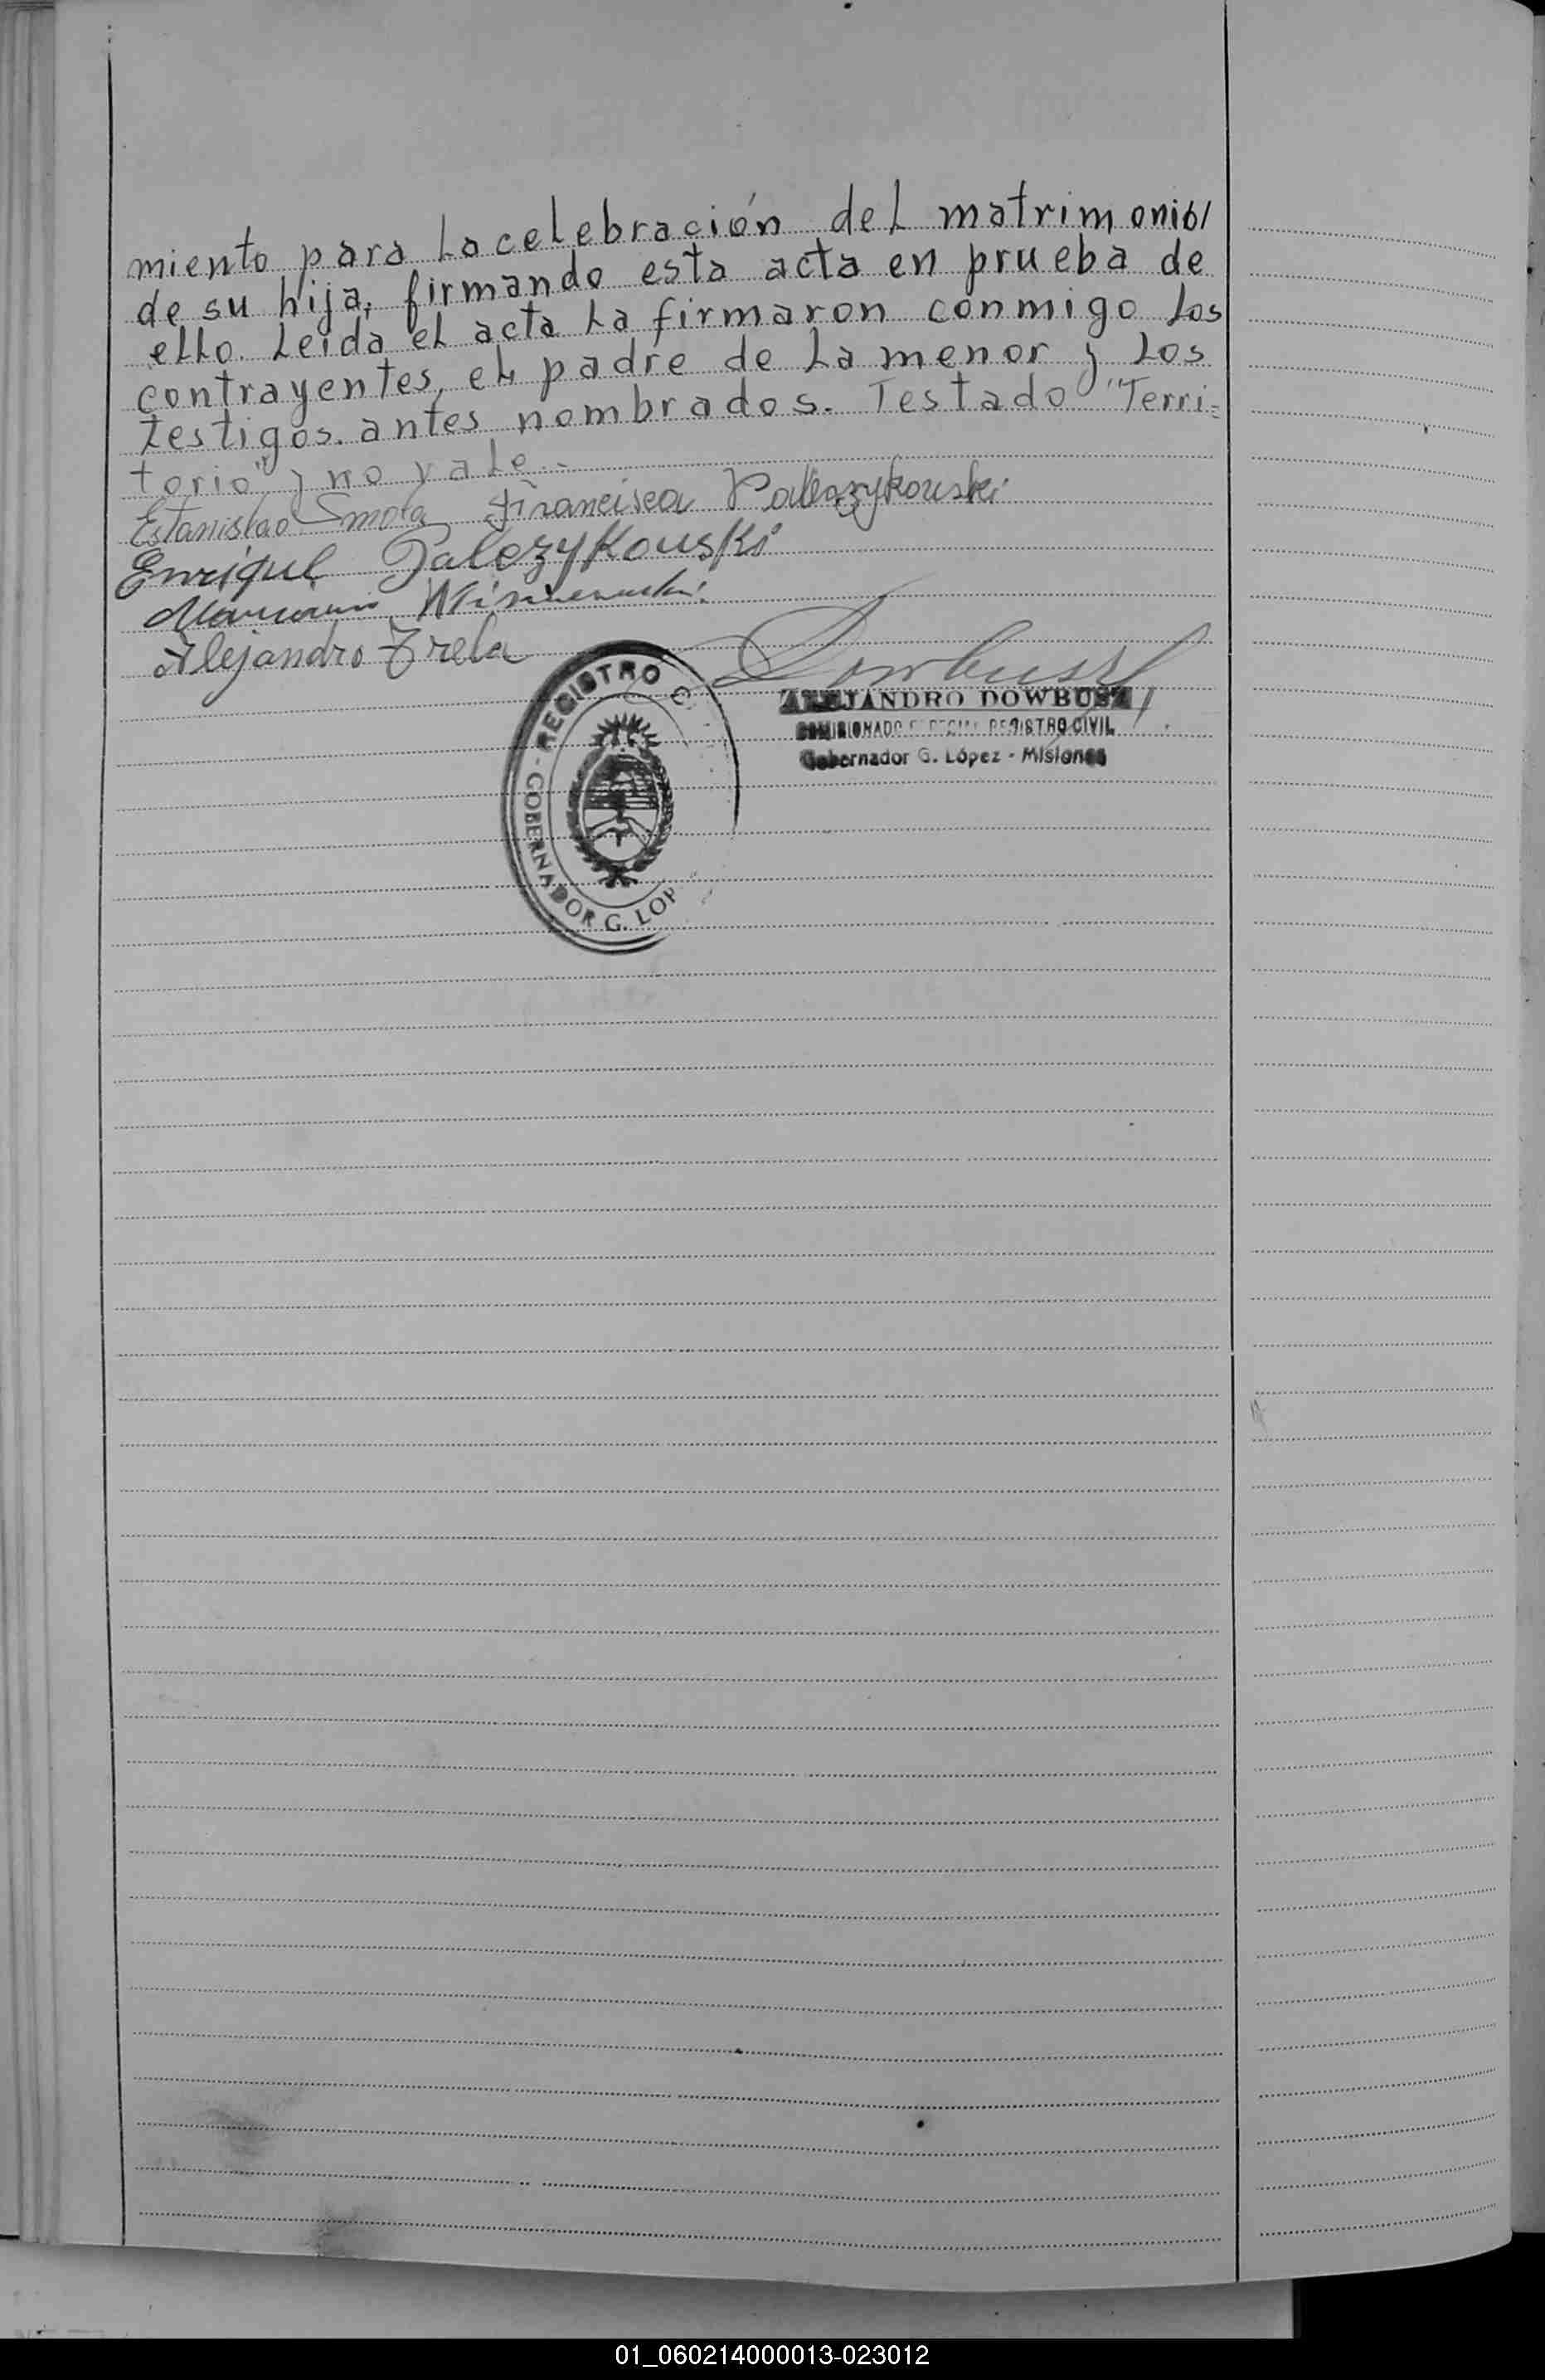 miento para la celebración del matrimonio/
de su hija, firmando esta acta en prueba de
ello. Leida el acta la firmaron conmigo los
contrayentes, el padre de la menor y los
testigos antes nombrados. Testado "Terri=
torio" y no vale.-
Estanislao Smola Francisca Palczykouski
Enrique Palczykouski
Mariano Wisniewski.
Alejandro Trela
Dowbusz
REGISTRO C
- GOBERNADOR G. LOP
ALEJANDRO DOWBUSZ
COMISIONADO ESPECIAL REGISTRO CIVIL
Gobernador G. López - Misiones
01_060214000013-023012